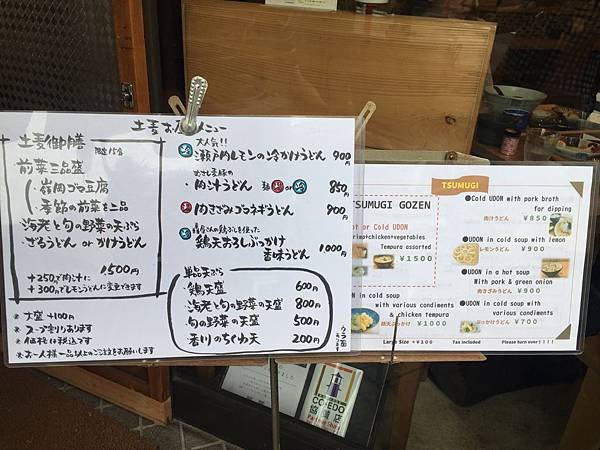 土麦お昼メニュー
土麦御膳 限定15食
前菜三品盛
嶺岡ゴマ豆腐
季節の前菜を二品
海老と旬の野菜の天ぷら
ざるうどん or かけうどん
1,500円
+250で肉汁に
+300でレモンうどんに変更できます
*大盛+100円
*スープ割りあります
*価格は税込です
*お一人様一品以上のご注文をお願いします
大人気!!
瀬戸内レモンの冷かけうどん 900円
むさし麦豚の
肉汁うどん or 850円
肉きざみゴマネギうどん 900円
鶏天おろしぶっかけ
香味うどん 1,000円
単品天ぷら
鶏天盛 600円
海老と旬の野菜の天盛 800円
旬の野菜の天盛 500円
香川のちくわ天 200円
TSUMUGI
TSUMUGI GOZEN
Hot or Cold UDON
chicken+vegetables
Tempura assorted
¥1500
UDON in cold soup
with various condiments
& chicken tempura
鶏天ぶっかけ ¥1000
Large Size +¥100
Tax included
Please turn over!!!!
Cold UDON with pork broth
for dipping
肉汁うどん ¥850
UDON in cold soup with lemon
レモンうどん ¥900
UDON in a hot soup
With pork & green onion
肉きざみうどん ¥900
UDON in cold soup with
various condiments
ぶっかけうどん ¥700
CO-EDO
協議店